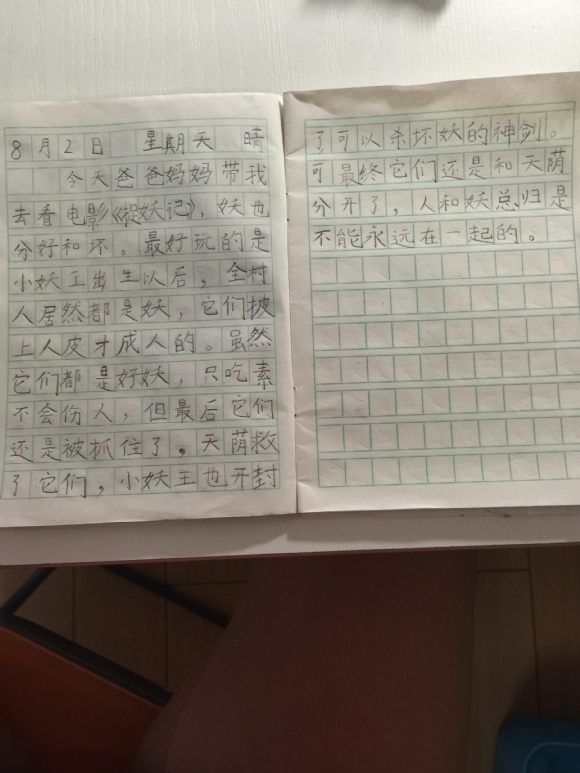 8月2日 星期天 晴
今天爸爸妈妈带我
去看电影《捉妖记》，妖也
分好和坏。最好玩的是
小妖王出生以后，全村
人居然都是妖，它们披
上人皮才成人的。虽然
它们都是好妖，只吃素
不会伤人，但最后它们
还是被抓住了，天荫救
了它们，小妖王也开封
了可以杀坏妖的神剑。
可最终它们还是和天荫
分开了，人和妖总归是
不能永远在一起的。